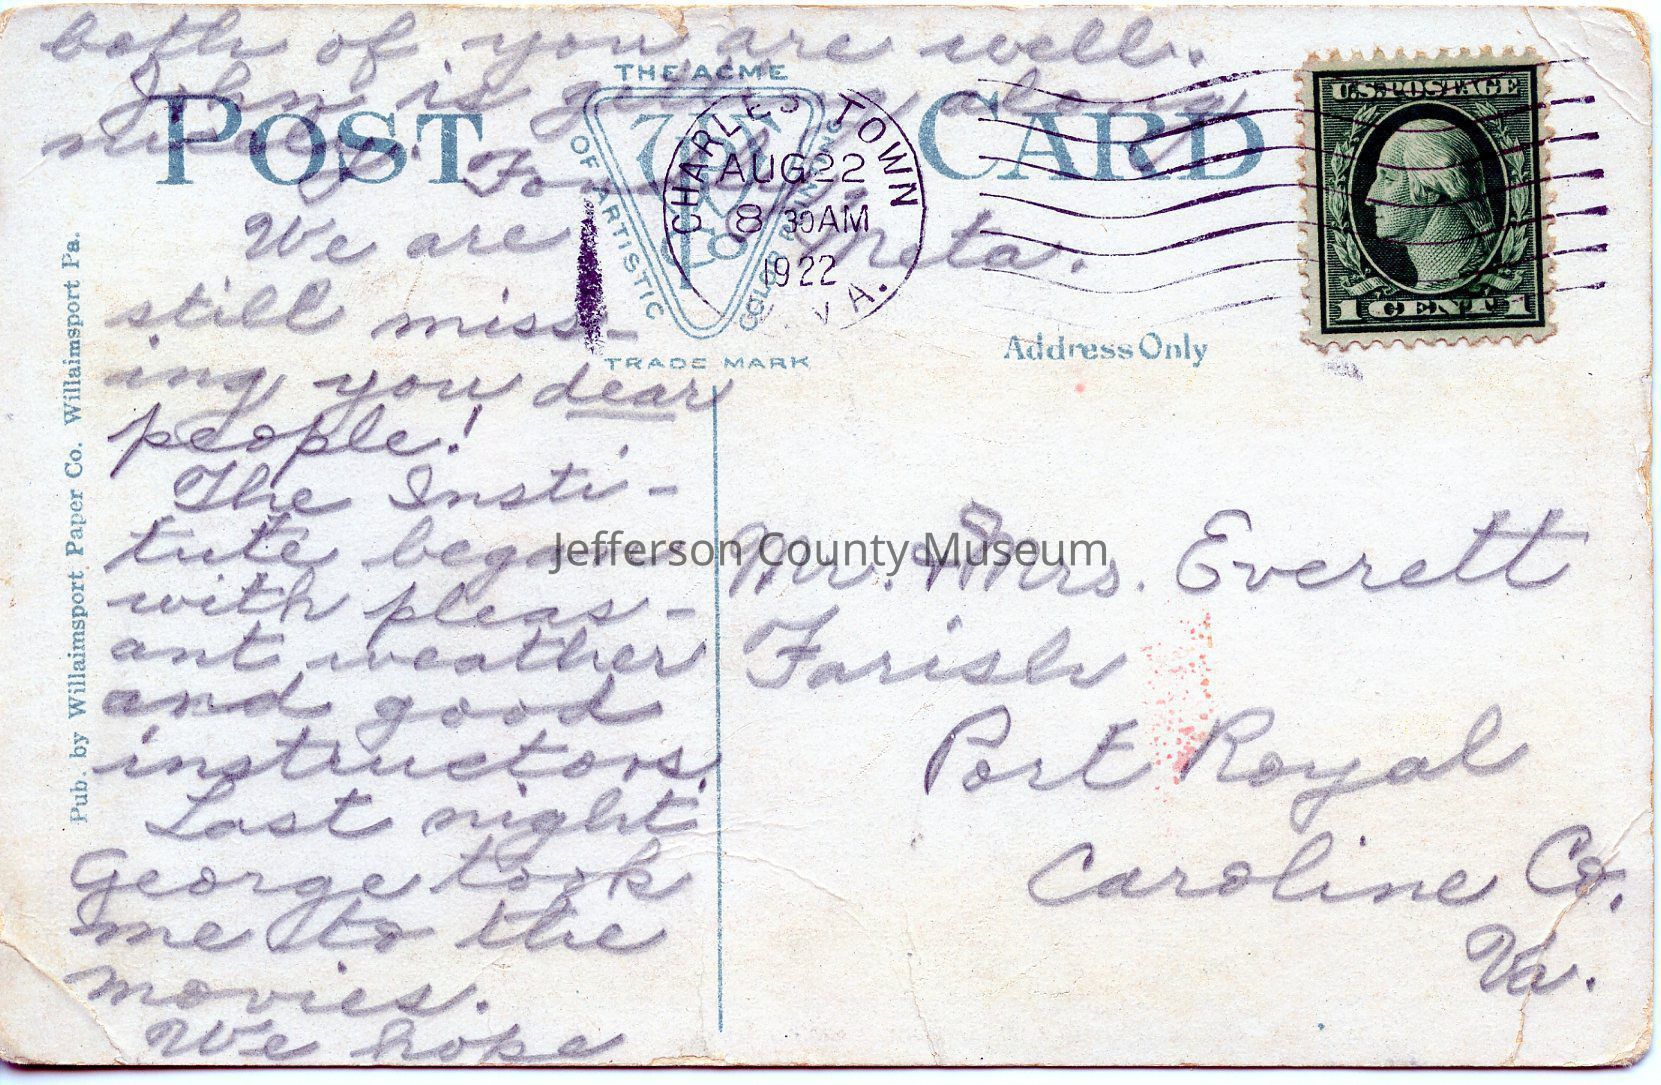 both of you are well.
John is getting along
nicely.
Fondly,
Greta.
We are
still miss-
ing you dear
people!
The Insti-
tute began
with pleas-
ant weather
and good
instructors.
Last night
George took
me to the
movies.
We hope
POST CARD
THE ACME
OF ARTISTIC
COLOR PRINTING
TRADE MARK
CHARLES TOWN
AUG 22
8 30 AM
1922
W. VA.
U.S. POSTAGE
1 CENT 1
Address Only
Mr. & Mrs. Everett
Farish
Port Royal
Caroline Co.
Va.
Pub. by Willaimsport Paper Co. Willaimsport Pa.
Jefferson County Museum